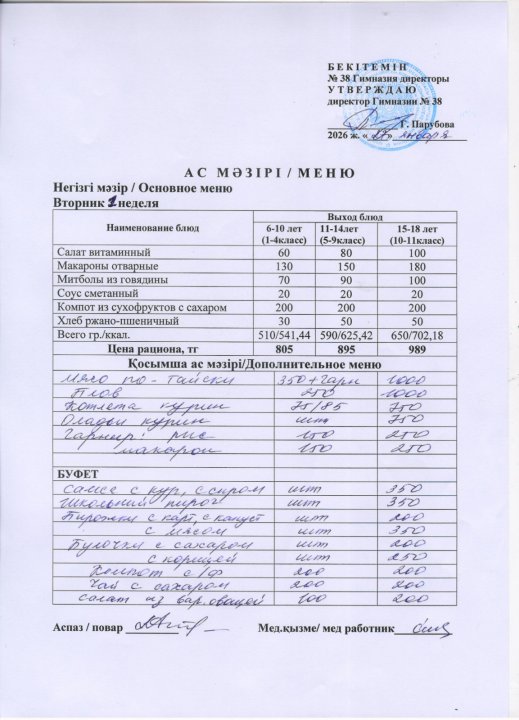 БЕКІТЕМІН
№ 38 Гимназия директоры
УТВЕРЖДАЮ
директор Гимназии № 38
Г. Парубова
2026 ж. « » января
АС МӘЗІРІ / МЕНЮ
Негізгі мәзір / Основное меню
Вторник 1 неделя
Наименование блюд Выход блюд
6-10 лет (1-4класс) 11-14лет (5-9класс) 15-18 лет (10-11класс)
Салат витаминный 60 80 100
Макароны отварные 130 150 180
Митболы из говядины 70 90 100
Соус сметанный 20 20 20
Компот из сухофруктов с сахаром 200 200 200
Хлеб ржано-пшеничный 30 50 50
Всего гр./ккал. 510/541,44 590/625,42 650/702,18
Цена рациона, тг 805 895 989
Қосымша ас мәзірі/Дополнительное меню
Мясо по-тайски 350+гарн 1000
Плов 250 1000
Котлета курин 75/85 750
Оладьи курин шт 750
Гарнир: рис 150 250
макарон 150 250
БУФЕТ
Самса с кур, с сыром шт 350
Школьный пирог шт 350
Пирожки с карт, с капуст шт 200
с мясом шт 350
Булочки с сахаром шт 200
с корицей шт 250
Компот с/ф 200 200
Чай с сахаром 200 200
Салат из вар.овощей 100 200
Аспаз / повар Мед.қызме/ мед работник